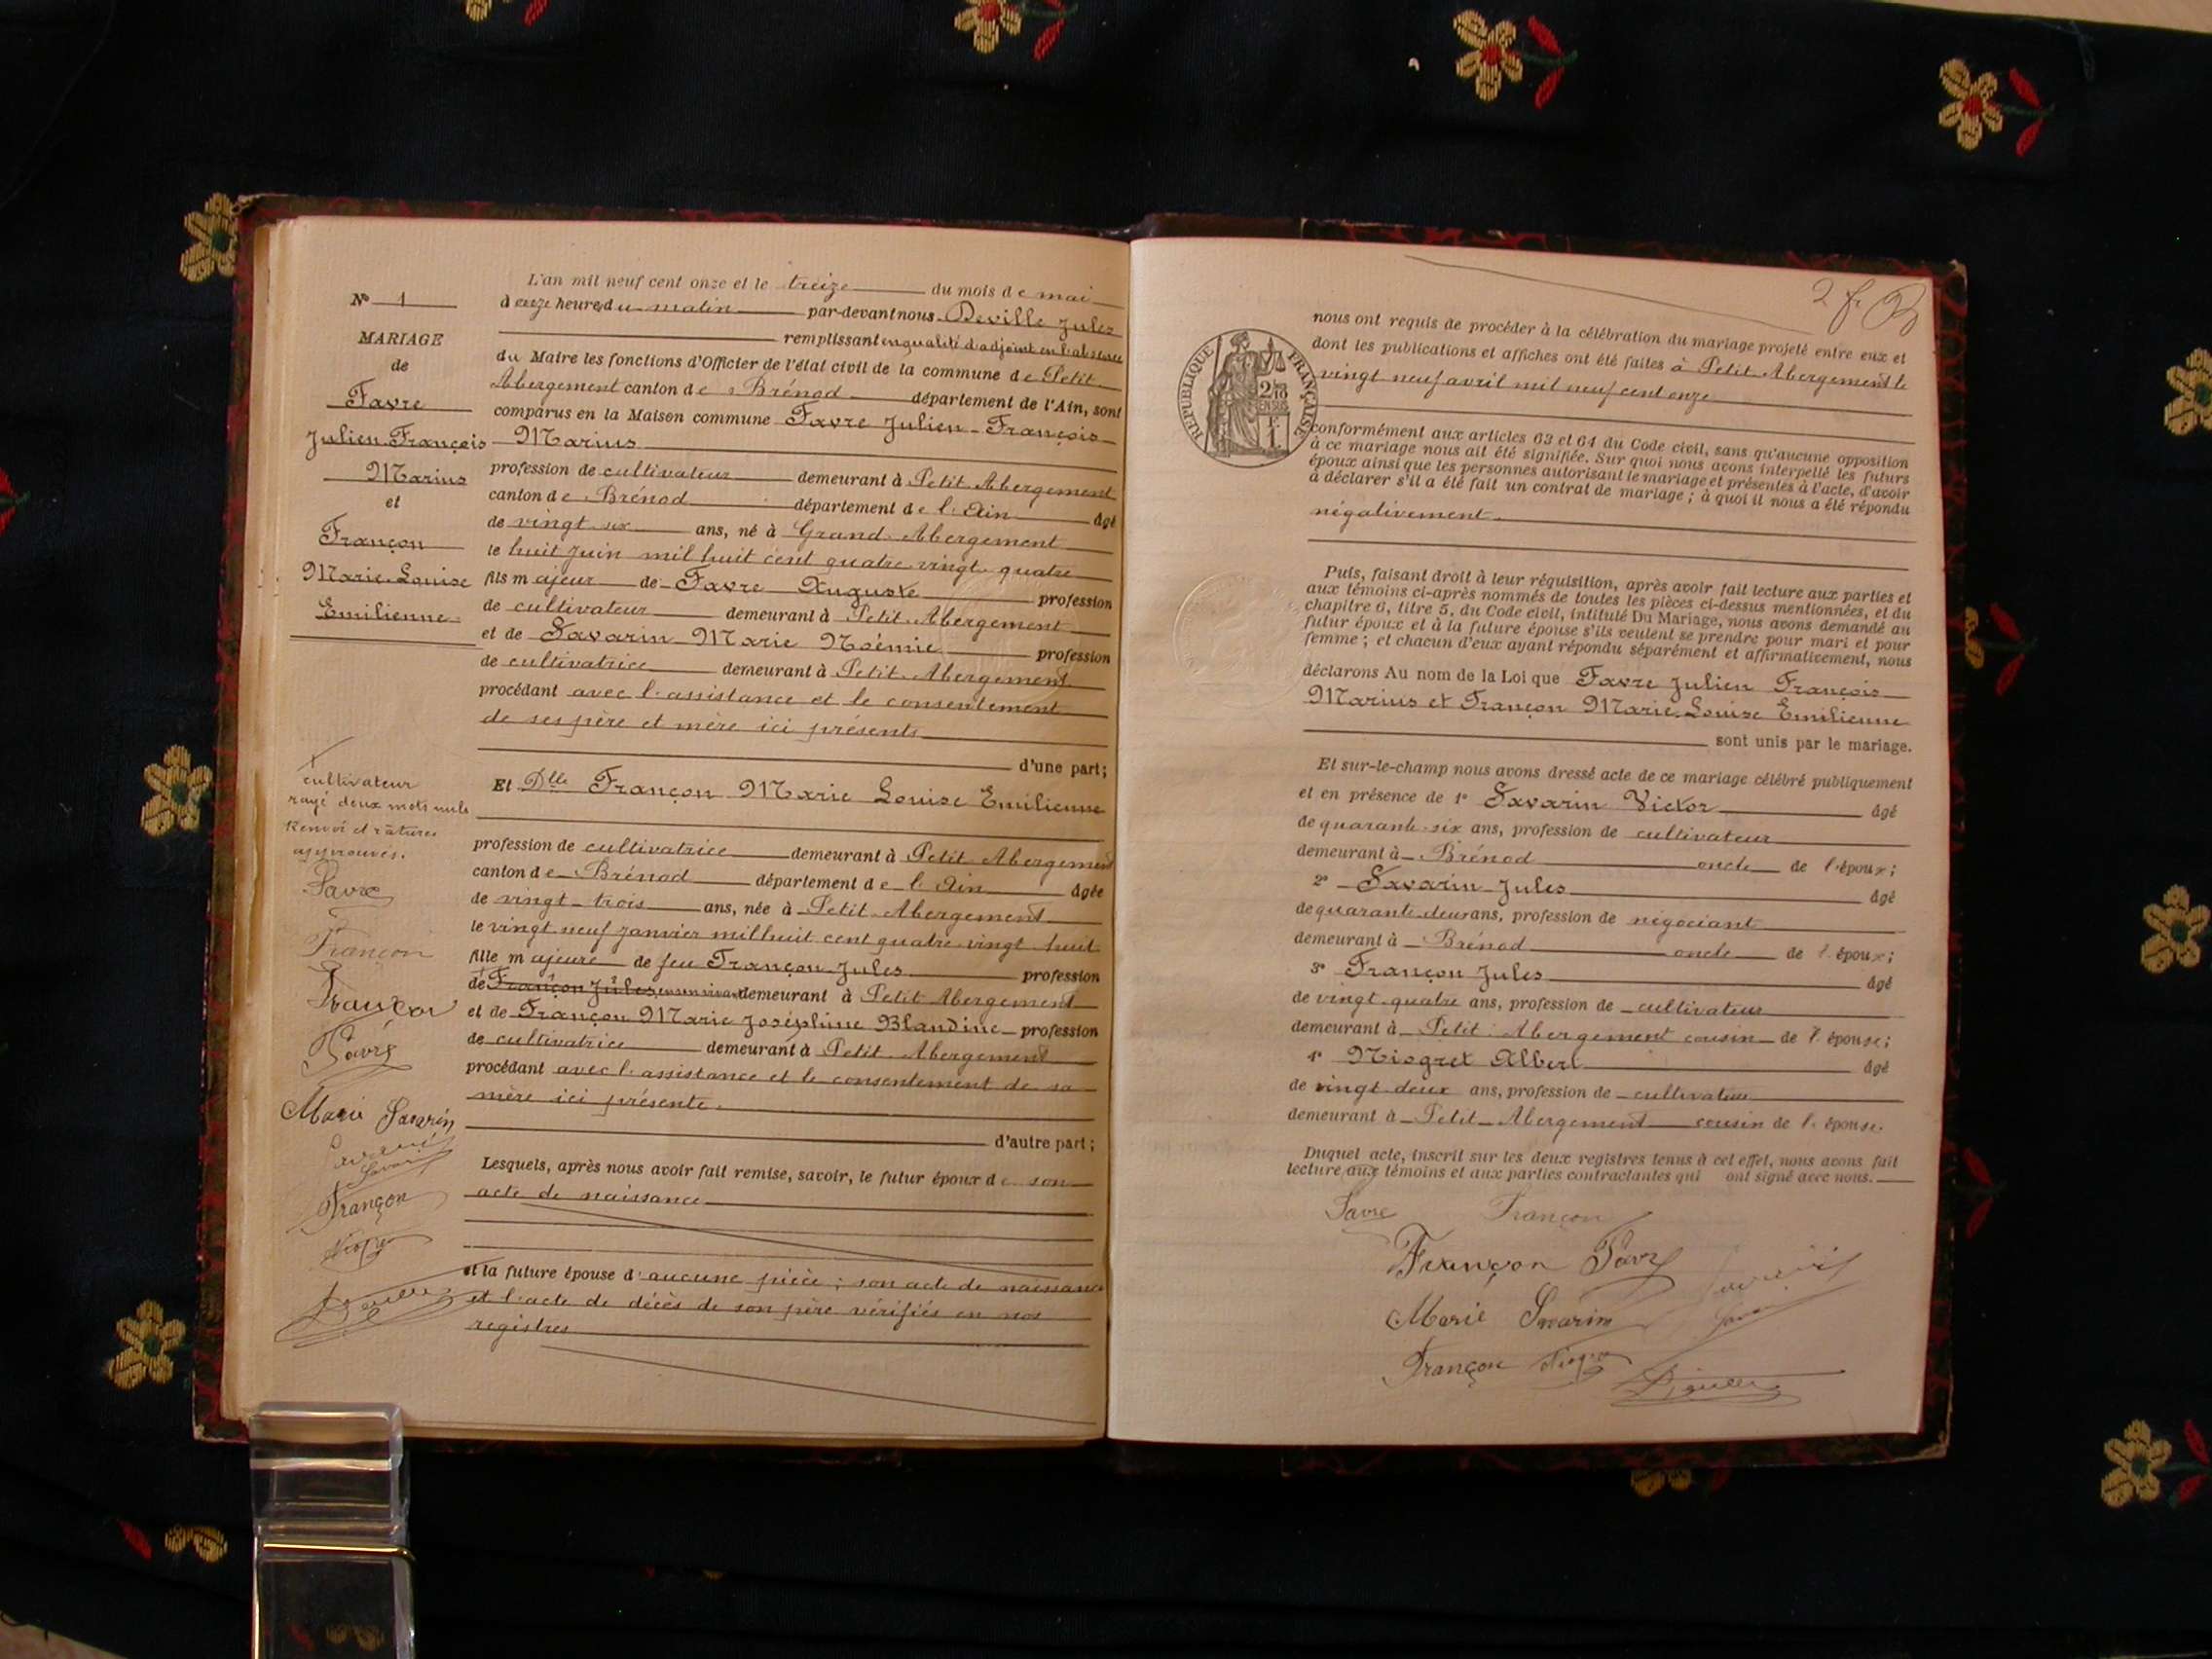 N° 1
MARIAGE
de
Favre
Julien François
Marius
et
Françon
Marie Louise
Emilienne
L'an mil neuf cent onze et le treize du mois de mai
à onze heures du matin par-devant nous Deville Jules
remplissant en qualité d'adjoint en l'absence
du Maire les fonctions d'Officier de l'état civil de la commune de Petit
Abergement canton de Brénod département de l'Ain, sont
comparus en la Maison commune Favre Julien-François
Marius
profession de cultivateur demeurant à Petit Abergement
canton de Brénod département de l'Ain âgé
de vingt six ans, né à Grand Abergement
le huit juin mil huit cent quatre vingt quatre
fils majeur de Favre Auguste profession
de cultivateur demeurant à Petit Abergement
et de Savarin Marie Noémie profession
de cultivatrice demeurant à Petit Abergement
procédant avec l'assistance et le consentement
de ses père et mère ici présents
d'une part;
Et Dlle Françon Marie Louise Emilienne
profession de cultivatrice demeurant à Petit Abergement
canton de Brénod département de l'Ain âgée
de vingt trois ans, née à Petit Abergement
le vingt neuf janvier mil huit cent quatre vingt huit
fille majeure de feu Françon Jules profession
de Françon Jules en son vivant demeurant à Petit Abergement
et de Françon Marie Joséphine Blandine profession
de cultivatrice demeurant à Petit Abergement
procédant avec l'assistance et le consentement de sa
mère ici présente.
d'autre part;
Lesquels, après nous avoir fait remise, savoir, le futur époux de son
acte de naissance
et la future épouse d'aucune pièce ; son acte de naissance
et l'acte de décès de son père vérifiés en nos
registres
cultivateur
rayé deux mots nuls
Renvoi et ratures
approuvés.
Favre
Françon
Françon
Favre
Marie Savarin
Savarin
Françon
Niogret
Deville
2 f.
RÉPUBLIQUE FRANÇAISE
2/10
EN SUS
1F
nous ont requis de procéder à la célébration du mariage projeté entre eux et
dont les publications et affiches ont été faites à Petit Abergement le
vingt neuf avril mil neuf cent onze
conformément aux articles 63 et 64 du Code civil, sans qu'aucune opposition
à ce mariage nous ait été signifiée. Sur quoi nous avons interpellé les futurs
époux ainsi que les personnes autorisant le mariage et présentes à l'acte, d'avoir
à déclarer s'il a été fait un contrat de mariage ; à quoi il nous a été répondu
négativement
Puis, faisant droit à leur réquisition, après avoir fait lecture aux parties et
aux témoins ci-après nommés de toutes les pièces ci-dessus mentionnées, et du
chapitre 6, titre 5, du Code civil, intitulé Du Mariage, nous avons demandé au
futur époux et à la future épouse s'ils veulent se prendre pour mari et pour
femme ; et chacun d'eux ayant répondu séparément et affirmativement, nous
déclarons Au nom de la Loi que Favre Julien François
Marius et Françon Marie Louise Emilienne
sont unis par le mariage.
Et sur-le-champ nous avons dressé acte de ce mariage célébré publiquement
et en présence de 1° Savarin Victor âgé
de quarante-six ans, profession de cultivateur
demeurant à Brénod oncle de l'époux;
2° Savarin Jules âgé
de quarante deux ans, profession de négociant
demeurant à Brénod oncle de l'époux;
3° Françon Jules âgé
de vingt quatre ans, profession de cultivateur
demeurant à Petit Abergement cousin de l'épouse;
4° Niogret Albert âgé
de vingt deux ans, profession de cultivateur
demeurant à Petit Abergement cousin de l'épouse.
Duquel acte, inscrit sur les deux registres tenus à cet effet, nous avons fait
lecture aux témoins et aux parties contractantes qui ont signé avec nous.
Favre Françon
Françon Favre Savarin
Marie Savarin Savarin
Françon Niogret
Deville